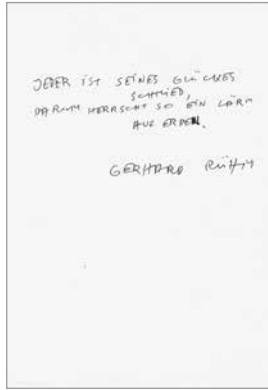 JEDER IST SEINES GLÜCKES
SCHMIED,
DARUM HERRSCHT SO EIN LÄRM
AUF ERDEN.
GERHARD RÜHM